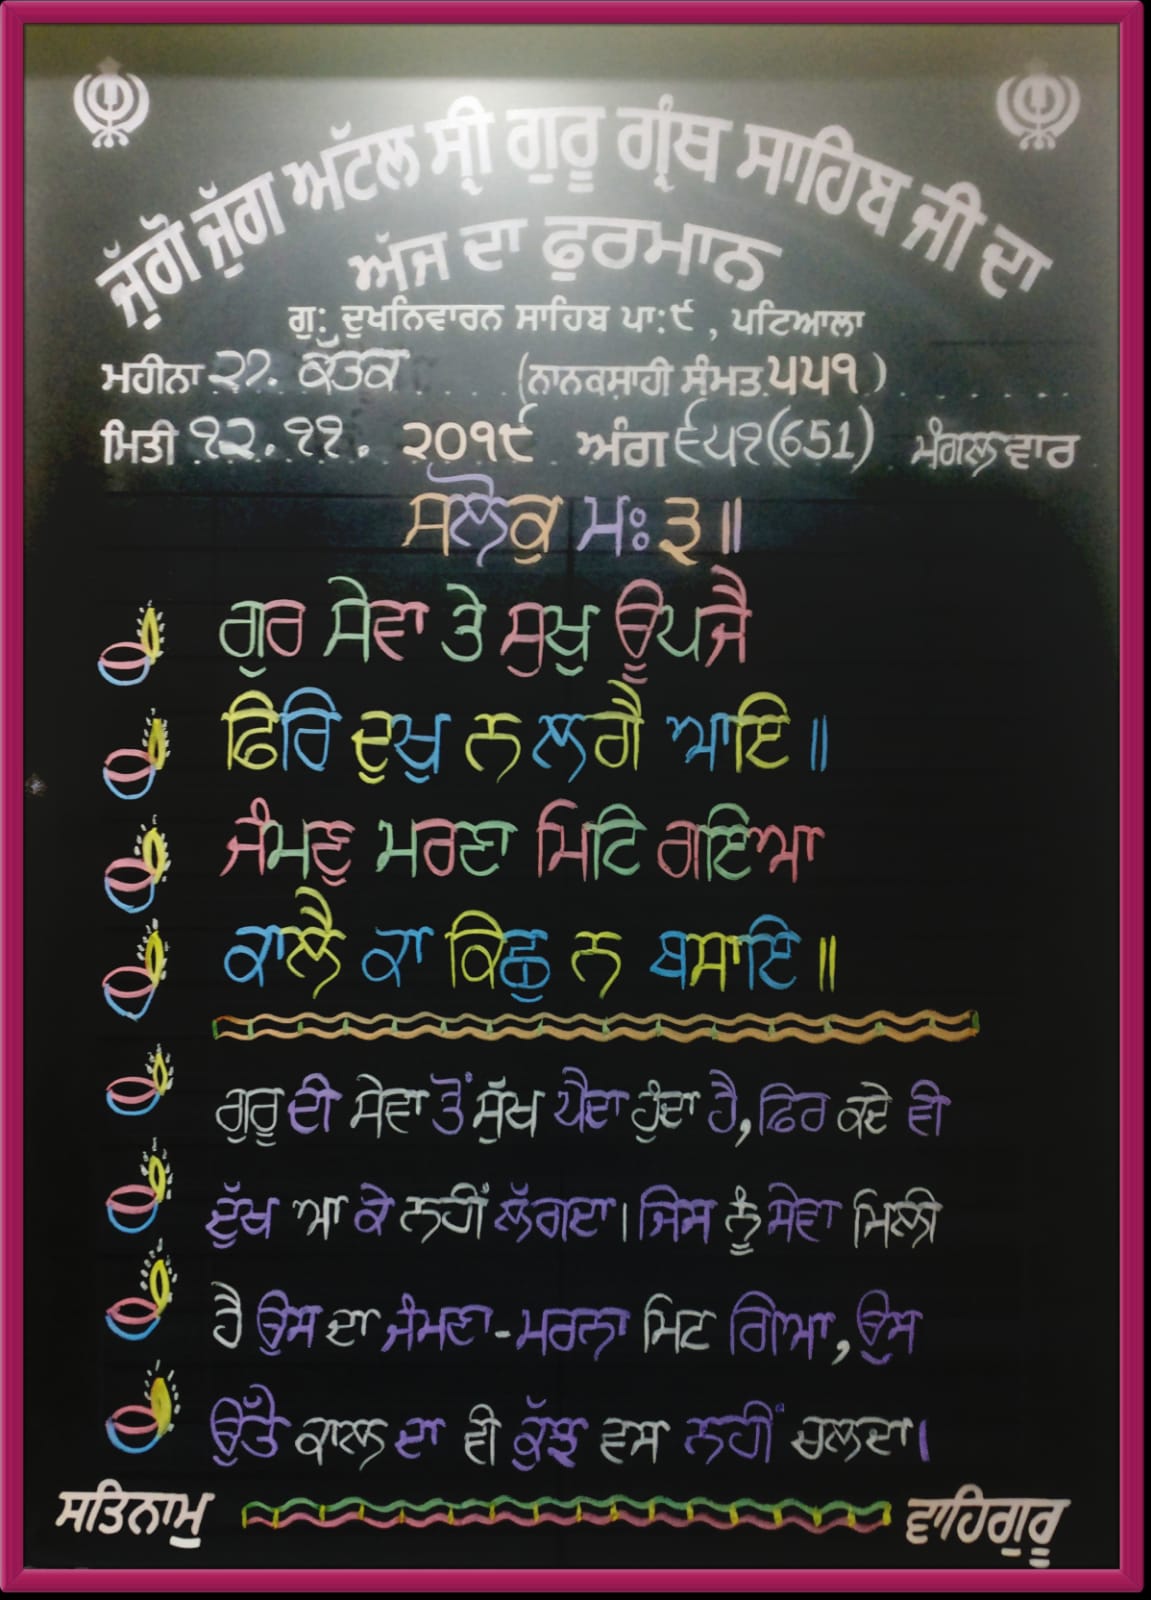 ਜੁੱਗੋ ਜੁੱਗ ਅਟੱਲ ਸ੍ਰੀ ਗੁਰੂ ਗ੍ਰੰਥ ਸਾਹਿਬ ਜੀ ਦਾ
ਅੱਜ ਦਾ ਫੁਰਮਾਨ
ਗੁ: ਦੁਖਨਿਵਾਰਨ ਸਾਹਿਬ ਪਾ:੯, ਪਟਿਆਲਾ
ਮਹੀਨਾ ੨੭. ਕੱਤਕ (ਨਾਨਕਸ਼ਾਹੀ ਸੰਮਤ ੫੫੧)
ਮਿਤੀ ੧੨.੧੧. ੨੦੧੯ ਅੰਗ ੬੫੧(651) ਮੰਗਲਵਾਰ
ਸਲੋਕੁ ਮਃ ੩ ॥
ਗੁਰ ਸੇਵਾ ਤੇ ਸੁਖੁ ਊਪਜੈ
ਫਿਰਿ ਦੁਖੁ ਨ ਲਗੈ ਆਇ ॥
ਜੰਮਣੁ ਮਰਣਾ ਮਿਟਿ ਗਇਆ
ਕਾਲੈ ਕਾ ਕਿਛੁ ਨ ਬਸਾਇ ॥
ਗੁਰੂ ਦੀ ਸੇਵਾ ਤੋਂ ਸੁੱਖ ਪੈਦਾ ਹੁੰਦਾ ਹੈ, ਫਿਰ ਕਦੇ ਵੀ
ਦੁੱਖ ਆ ਕੇ ਨਹੀਂ ਲੱਗਦਾ। ਜਿਸ ਨੂੰ ਸੇਵਾ ਮਿਲੀ
ਹੈ ਉਸ ਦਾ ਜੰਮਣਾ-ਮਰਨਾ ਮਿਟ ਗਿਆ, ਉਸ
ਉੱਤੇ ਕਾਲ ਦਾ ਵੀ ਕੁੱਝ ਵਸ ਨਹੀਂ ਚਲਦਾ।
ਸਤਿਨਾਮੁ ਵਾਹਿਗੁਰੂ